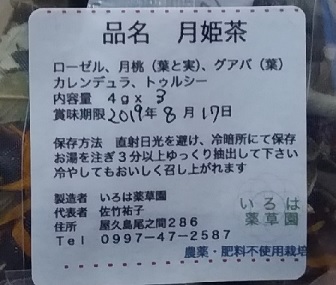 品名　月姫茶
ローゼル、月桃（葉と実）、グアバ（葉）
カレンデュラ、トゥルシー
内容量　4g×3
賞味期限2019年8月17日
保存方法　直射日光を避け、冷暗所にて保存
お湯を注ぎ3分以上ゆっくり抽出して下さい
冷やしてもおいしく召し上がれます
製造者　いろは薬草園
代表者　佐竹祐子
住所　屋久島尾之間286
Tel　0997-47-2587
いろは
薬草園
農薬・肥料不使用栽培